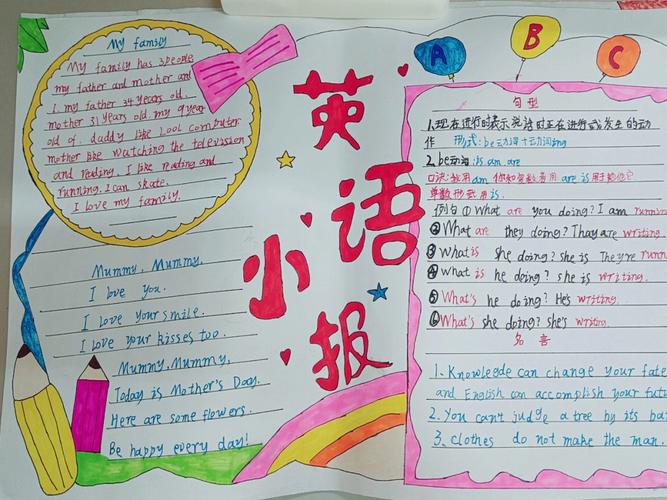 My family
My family has 3people
my father and mother and
I. my father 34 years old.
mother 31 years old. my 9year
old of. daddy like Lool computer
mother like watching the television
and reading. I like reading and
running. I can skate.
I love my family.
Mummy, Mummy,
I love you.
I love your smile.
I love your kisses too.
Mummy, Mummy,
Today is Mother's Day.
Here are some flowers.
Be happy every day!
英语
小报
A B C
句型
1.现在进行时表示说话时正在进行或发生的动
作 形式:be动词+动词ing
2.be动词:is.am.are
口诀:我用am 你和复数要用are is用于他你它
单数形式用is.
例句①What are you doing? I am runnin
②What are they doing? Thay are writing.
③What is she doing? She is They're runn
④What is he doing? she is writing.
⑤What's he doing? He's writing.
⑥What's she doing? she's writing.
名言
1. Knowlegde can change your fate
and English can accomplish your futu
2. You can't judge a tree by its ba
3. clothes do not make the man.